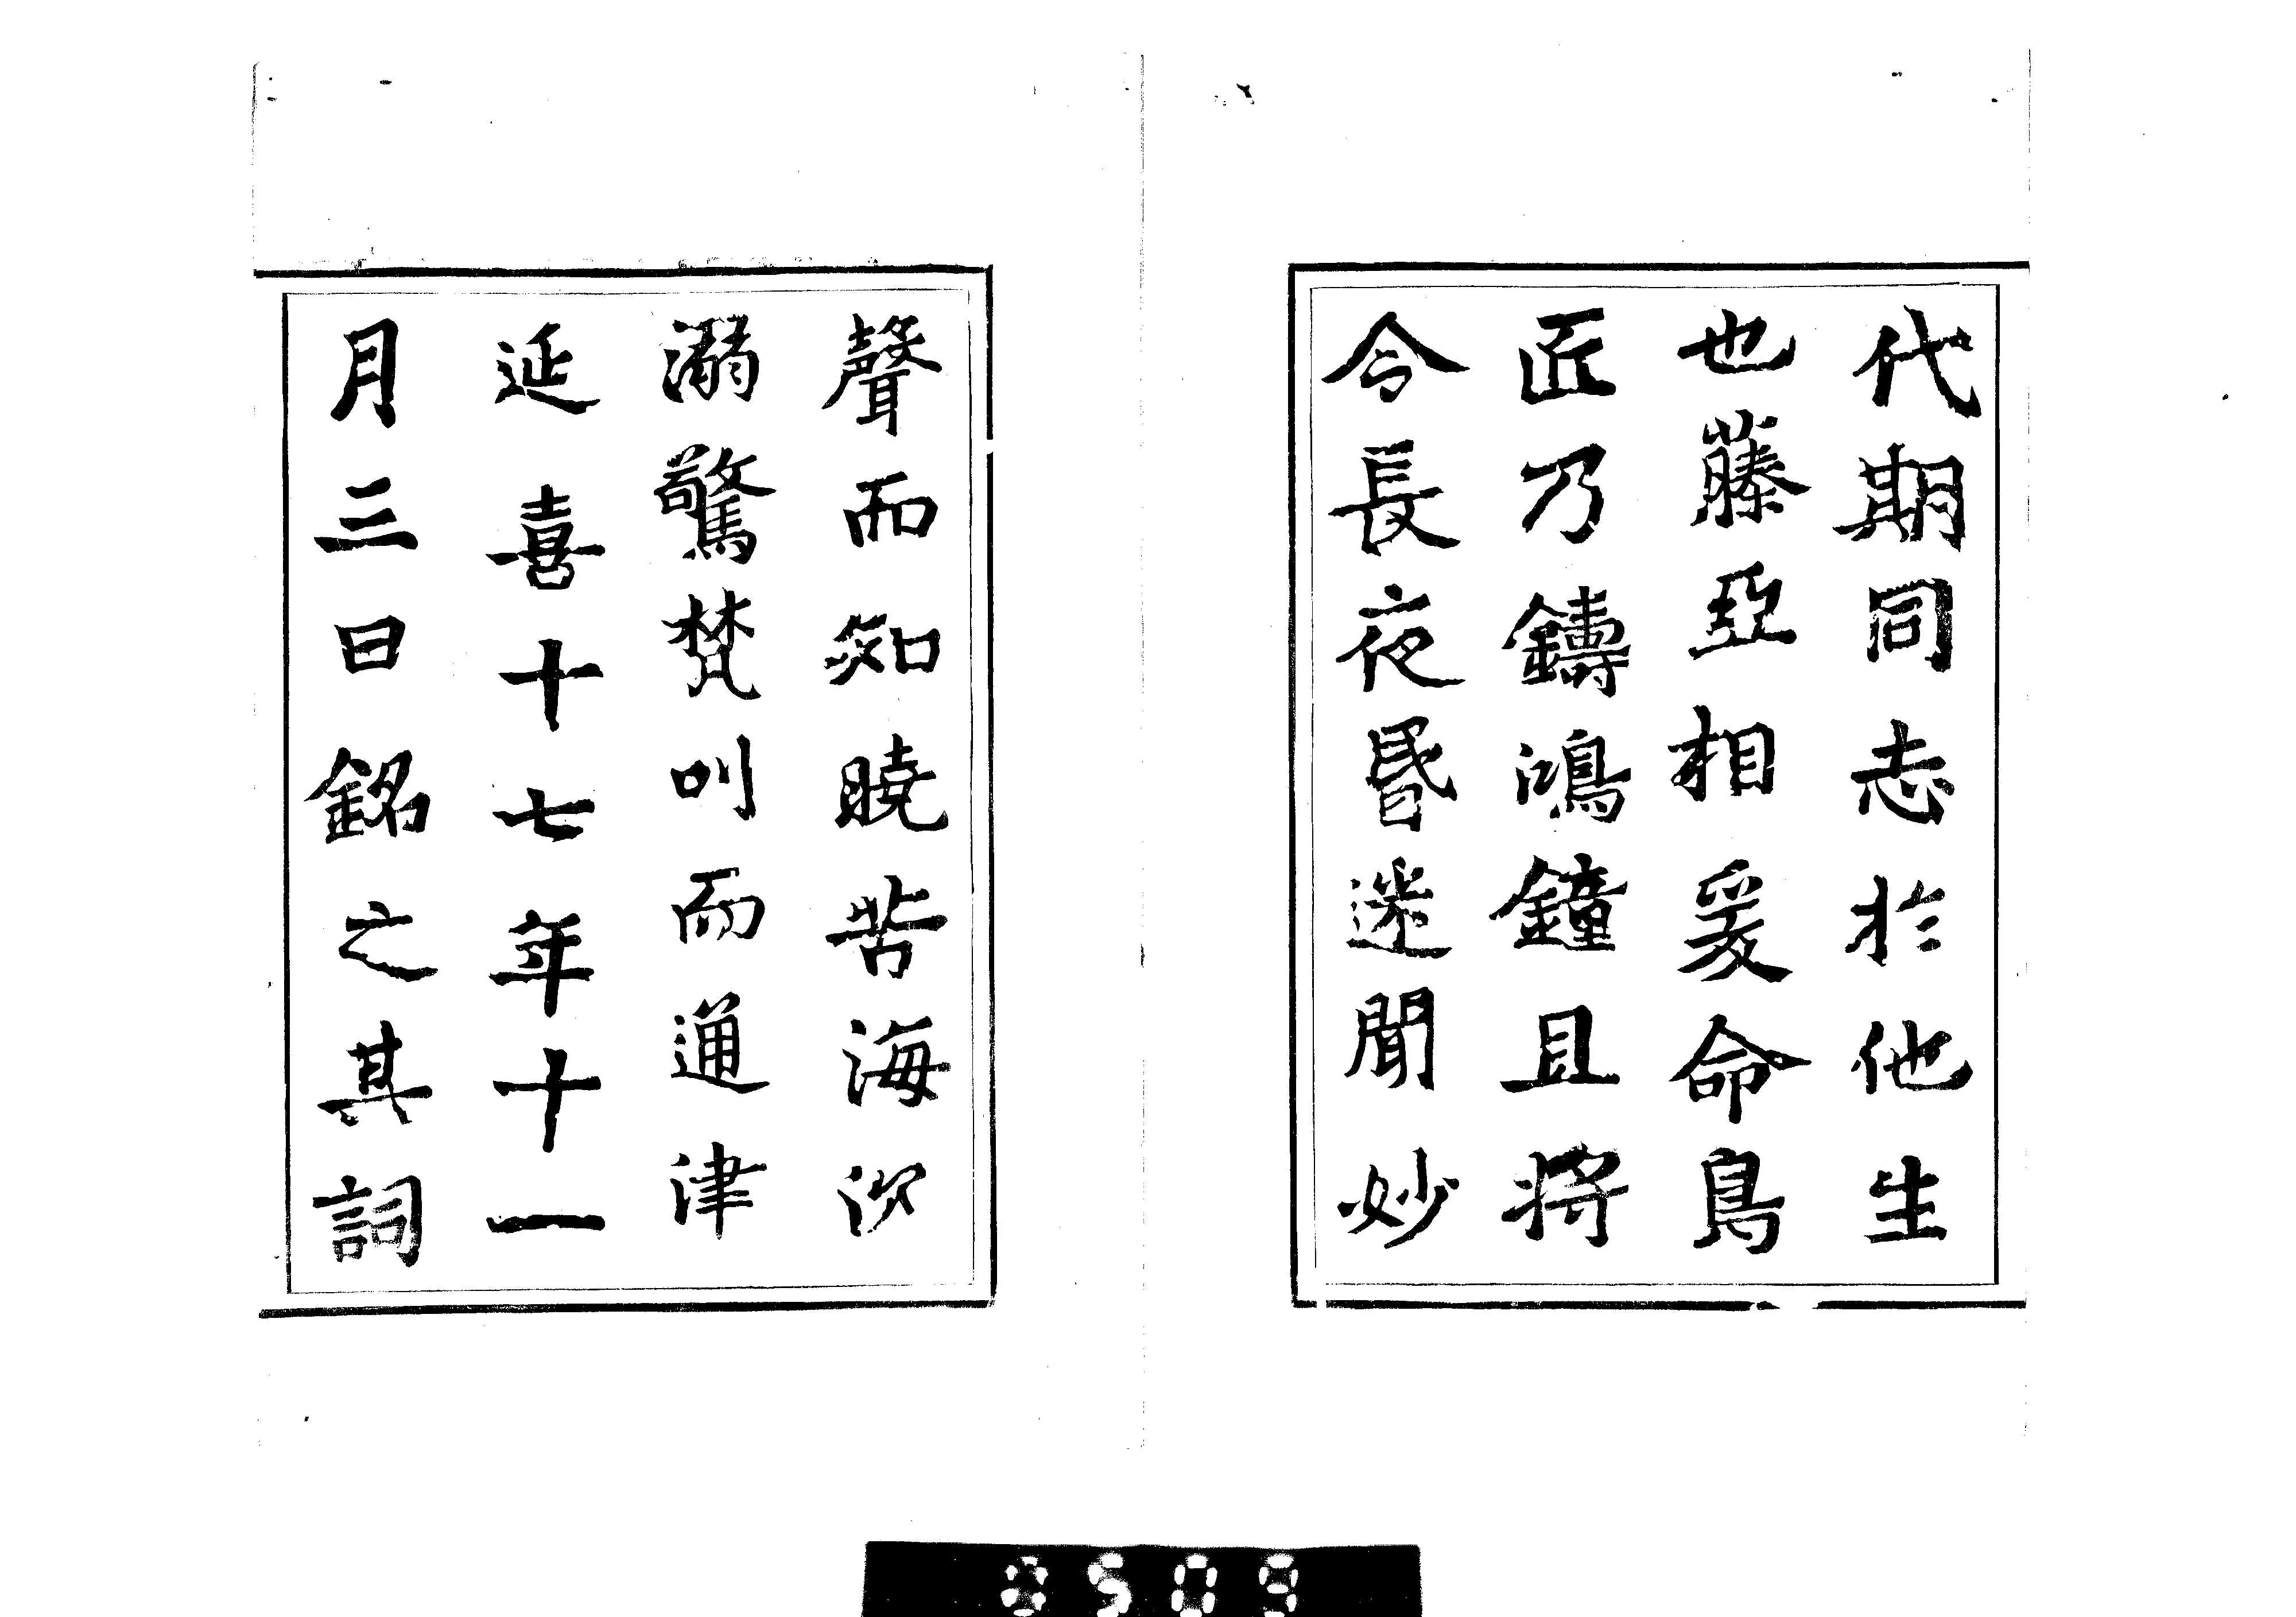 代期同志於他生
也藤亞相爰命鳧
匠乃鑄鴻鐘且將
令長夜昬迷聞妙
聲而知曉苦海沉
溺驚梵叫而通津
延喜十七年十一
月三日銘之其詞
0509